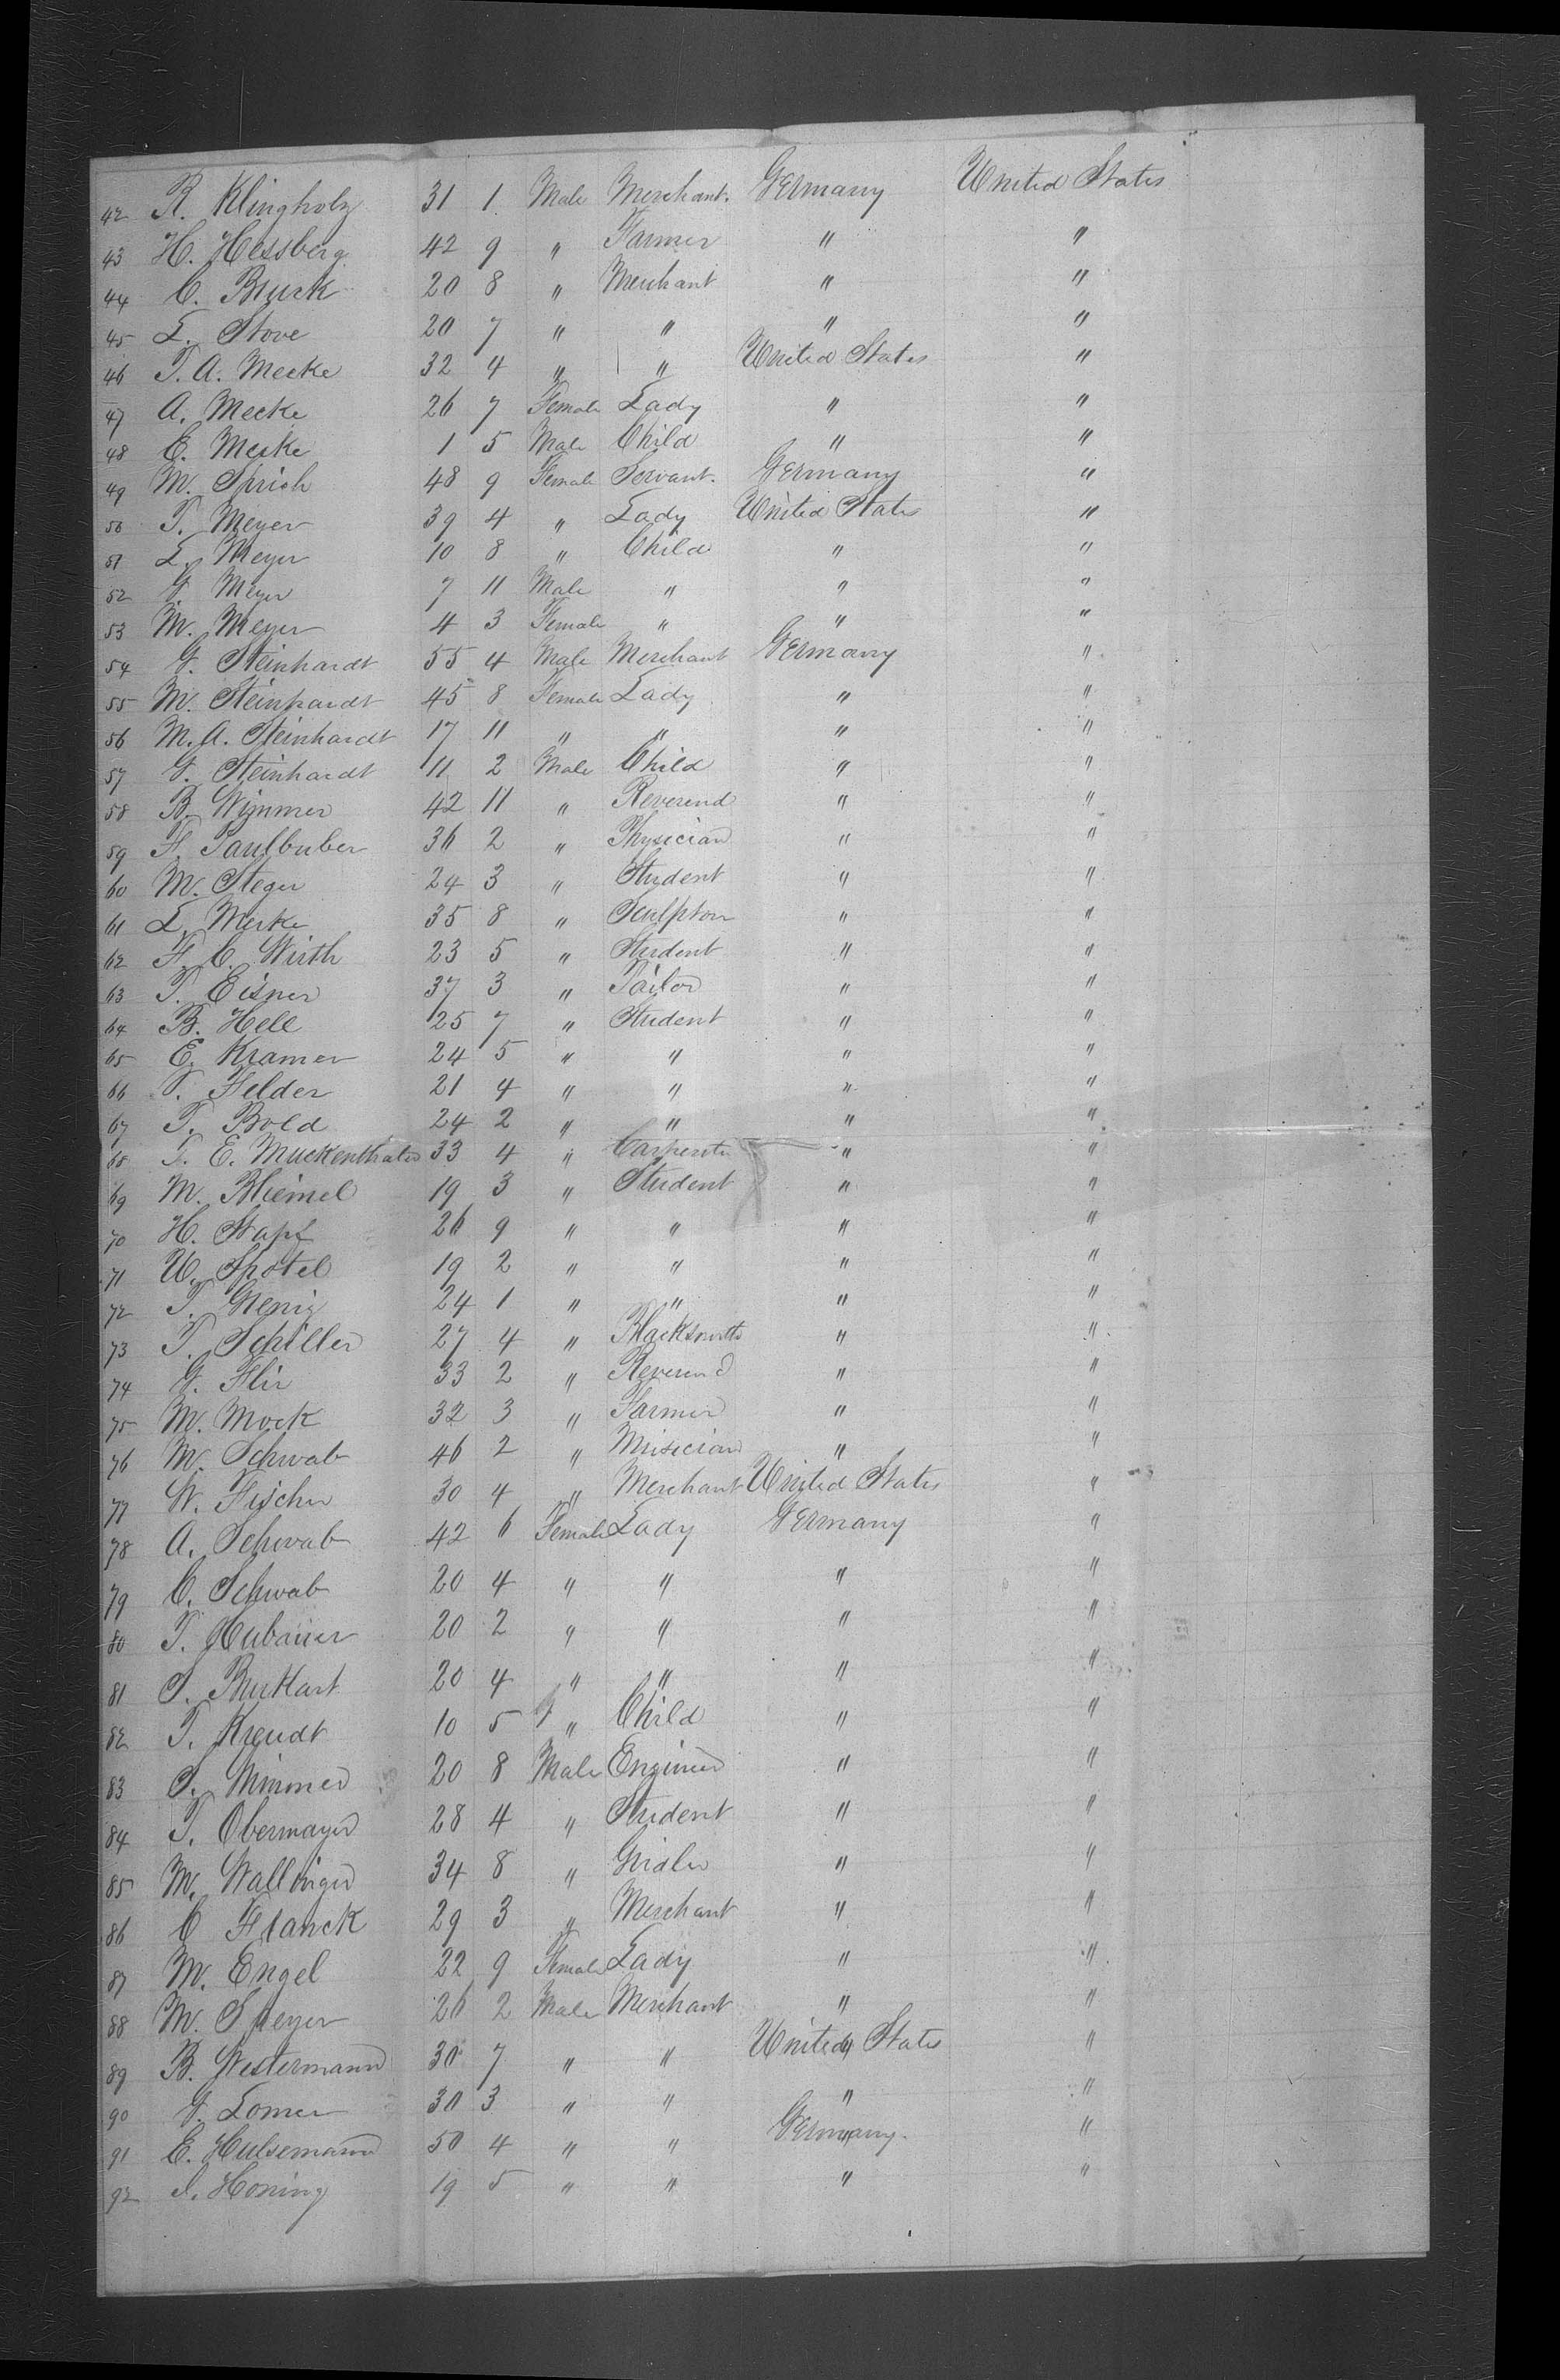 42 R. Klingholz 31 1 Male Merchant. Germany United States
43 H. Hessberg 42 9 " Farmer " "
44 C. Bruck 20 8 " Merchant " "
45 L. Stove 20 7 " " " "
46 T. A. Mecke 32 4 " " United States "
47 A. Mecke 26 7 Female Lady " "
48 E. Mecke 1 5 Male Child " "
49 M. 48 9 Female Servant. Germany "
50 T. Meyer 39 4 " Lady United States "
51 L. Meyer 10 8 " Child " "
52 G. Meyer 7 11 Male " " "
53 M. Meyer 4 3 Female " " "
54 G. Steinhardt 55 4 Male Merchant Germany "
55 M. Steinhardt 45 8 Female Lady " "
56 M. A. Steinhardt 17 11 " " " "
57 G. Steinhardt 11 2 Male Child " "
58 B. Wimmer 42 11 " Reverend " "
59 F. Paulbuber 36 2 " Physician " "
60 M. Steger 24 3 " Student " "
61 L. Merke 35 8 " Sculptor " "
62 F. C. Wirth 23 5 " Student " "
63 T. Eisner 37 3 " Tailor " "
64 B. Hell 25 7 " Student " "
65 E. Kramer 24 5 " " " "
66 T. Felder 21 4 " " " "
67 T. Bold 24 2 " " " "
68 T. E. Muckenthaler 33 4 " Carpenter " "
69 M. Bliemel 19 3 " Student " "
70 H. Stapf 26 9 " " " "
71 U. Spötel 19 2 " " " "
72 T. 24 1 " " " "
73 T. Schiller 27 4 " Blacksmith " "
74 G. Flir 33 2 " Reverend " "
75 M. Mock 32 3 " Farmer " "
76 M. Schwab 46 2 " Musician " "
77 W. Fischer 30 4 " Merchant United States "
78 A. Schwab 42 6 Female Lady Germany "
79 C. Schwab 20 4 " " " "
80 T. Hubauer 20 2 " " " "
81 S. Burkart 20 4 " " " "
82 T. Kreudt 10 5 " Child " "
83 S. Wimmer 20 8 Male Engineer " "
84 T. Obermayer 28 4 " Student " "
85 M. Wallinger 34 8 " Girdler " "
86 C Franck 29 3 " Merchant " "
87 M. Engel 22 9 Female Lady " "
88 M. Speyer 26 2 Male Merchant " "
89 B. Westermann 30 7 " " United States "
90 G. Lomer 30 3 " " " "
91 E. Hulsemann 50 4 " " Germany. "
92 I. Honing 19 5 " " " "